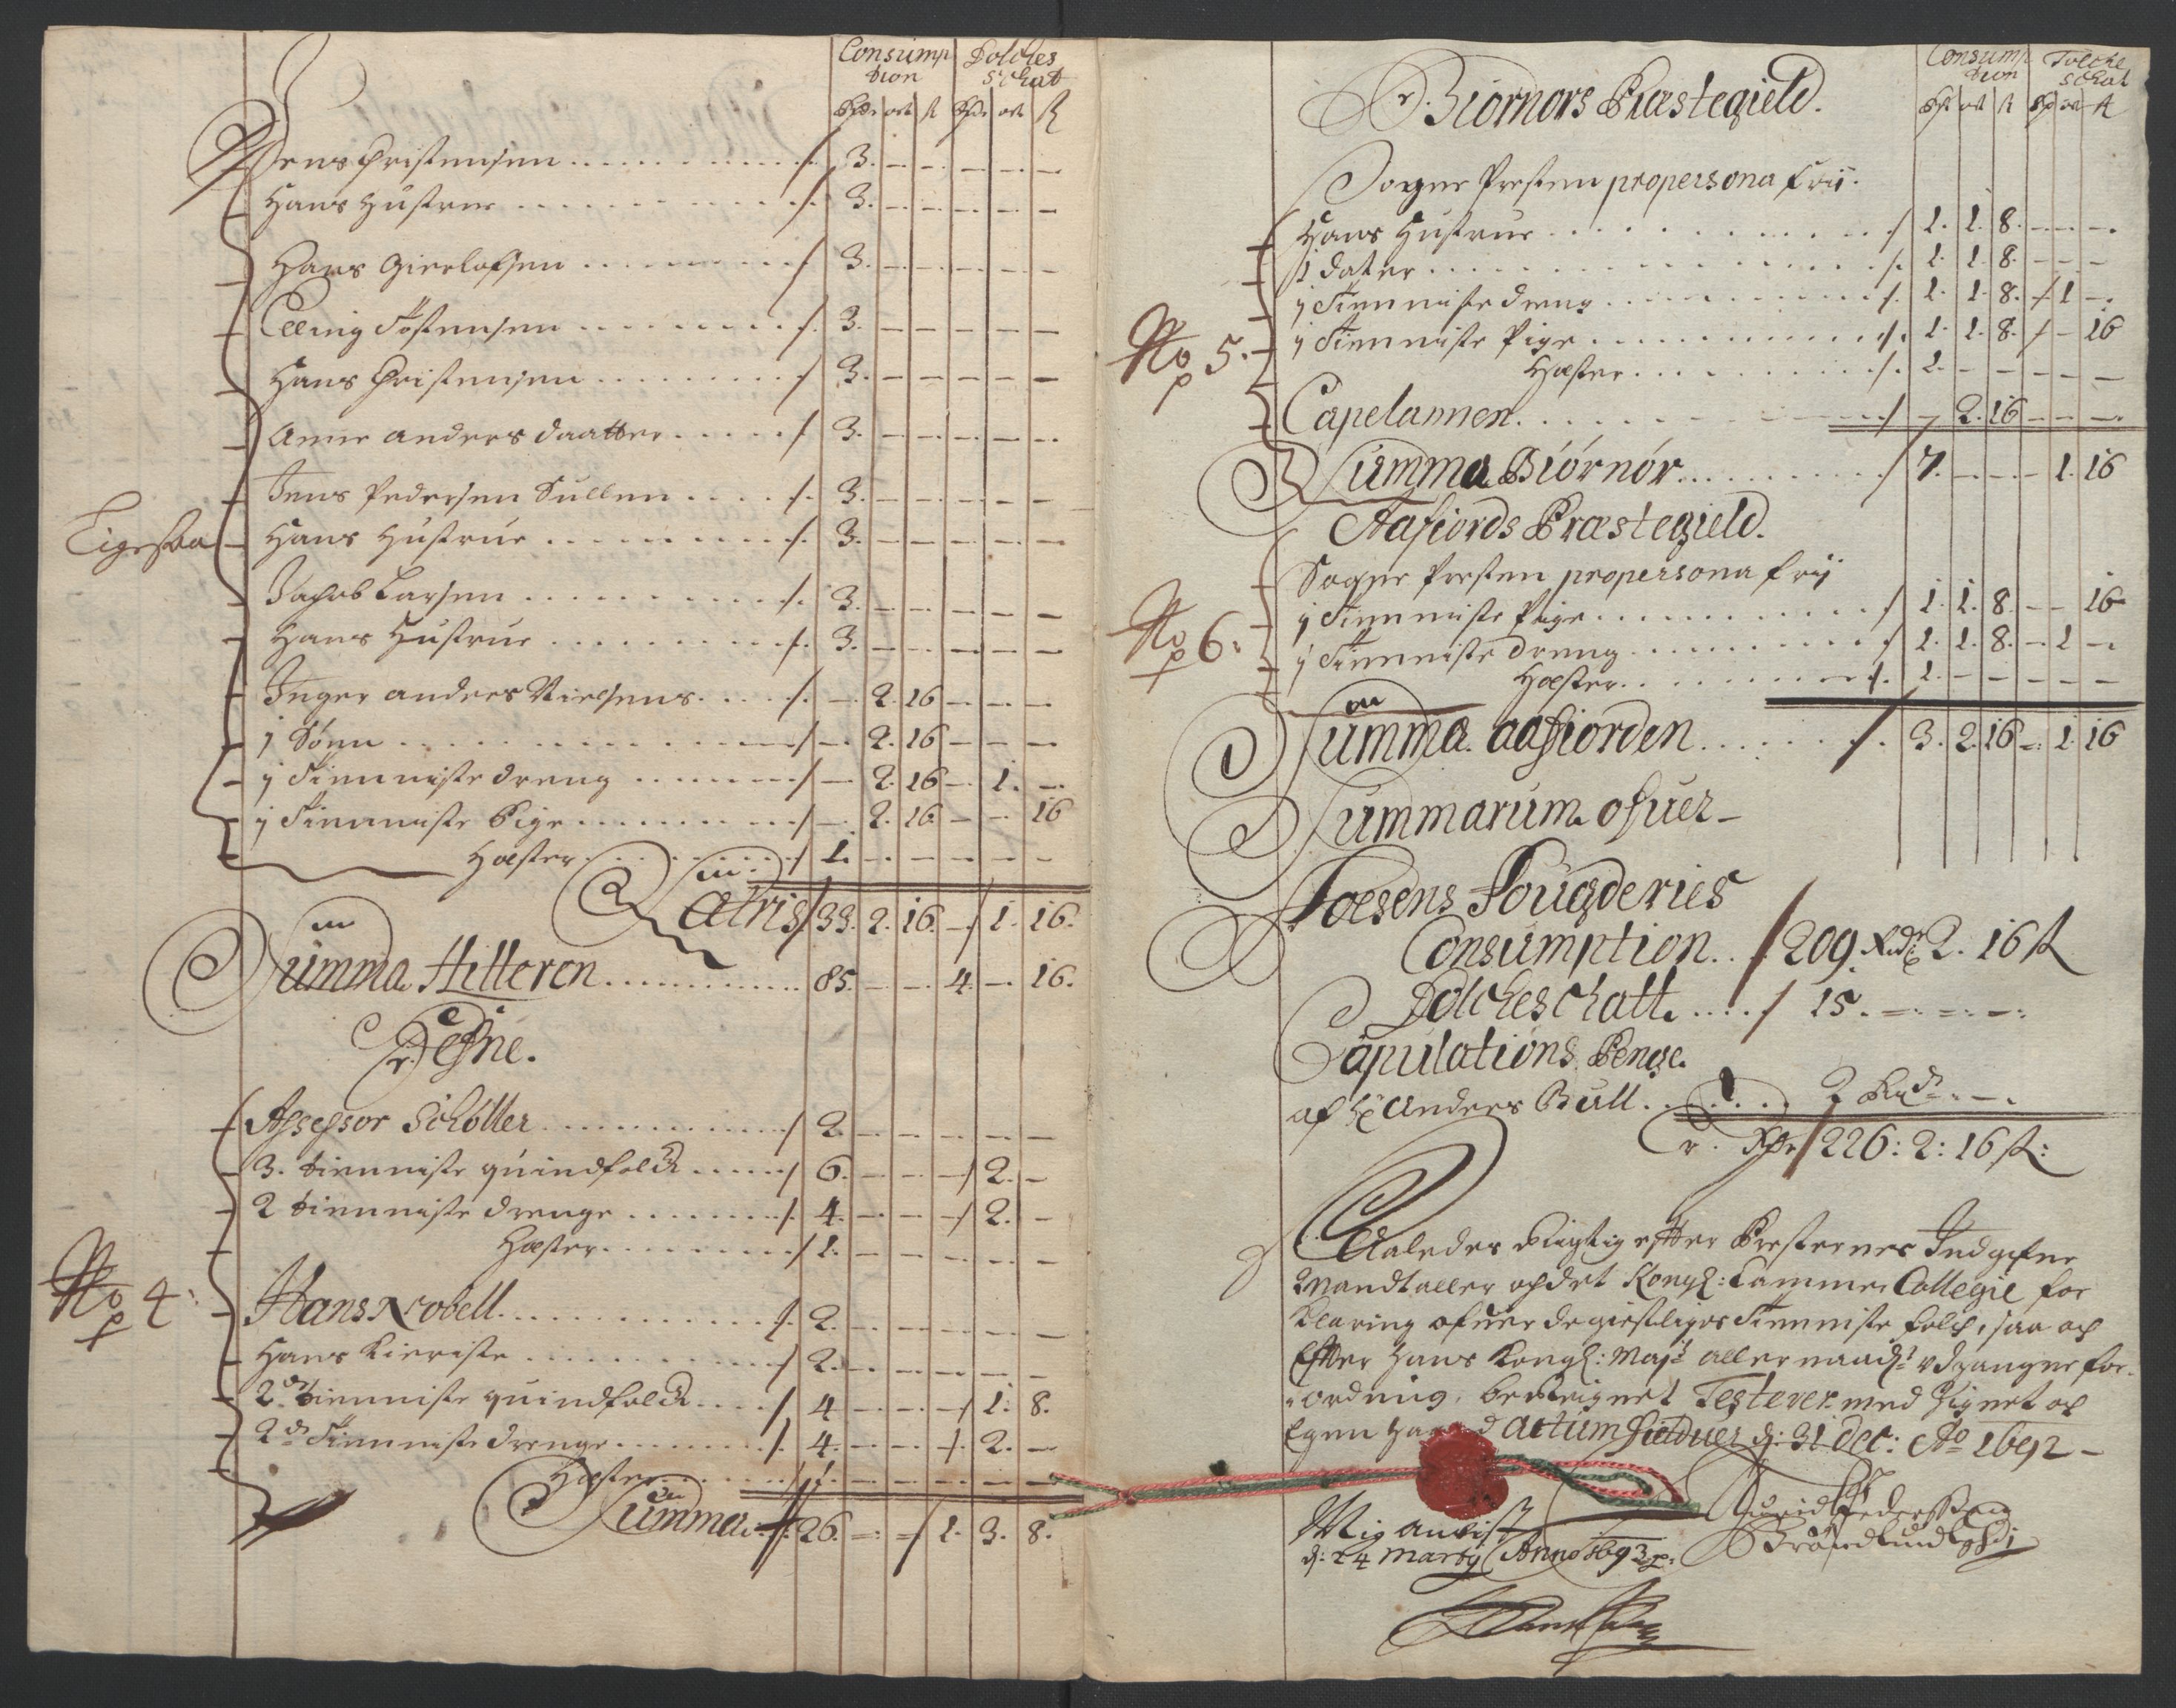 Consump Folches
tion schat
Rdr ort ß Rdr ort ß
Jens Christensen . . . 3. - - - - -
Hans Hustrue . . . 3. - - - - -
Hans Gierlofsen . . . 3. - - - - -
Elling Tostensen . . . 3. - - - - -
Hans Christensen . . . 3. - - - - -
Anne anders daatter . . . 3. - - - - -
Jens Pedersen Bullen . . . 3. - - - - -
Hans Hustrue . . . 3. - - - - -
Jachob Larsen . . . 3. - - - - -
Hans Hustrue . . . 3. - - - - -
Inger anders Nielsens . . . - 2. 16 - - -
1 Sönn . . . - 2. 16 - - -
1 Tienniste dreng . . . - 2. 16 - 1. -
1 Tienniste Pige . . . - 2. 16 - - 16
Hæster . . . 1. - - - - -
Lateris 33. 2. 16. - 1. 16.
Summa Hitteren . . . 85. - - 4. - 16.
Refne.
Assessor Schöller . . . 2. - - - - -
3. tienniste quindfolck . . . 6. - - - 2. -
2 tienniste drenge . . . 4. - - - 2. -
Hæster . . . 1. - - - - -
No 4:
Hans Nobell . . . 2. - - - - -
Hans Kieriste . . . 2. - - - - -
2de tienniste quindfolck . . . 4 - - - 1. 8.
2de Tienniste drenge . . . 4. - - - 2. -
Hæster . . . 1. - - - - -
Summa . . 26. - - 1. 3. 8.
Consump Folche
tion schat
Rdr ort ß Rdr ort ß
Biornörs Præstegield.
Sogne Presten propersona frij.
Hans Hustrue . . . 1. 1. 8. - - -
1 dater . . . 1. 1. 8. - - -
1 Tienniste dreng . . . 1. 1. 8. - 1 -
No 5.
1 Tienniste Pige . . . 1. 1. 8. - - 16
Hæster . . . 1. - - - - -
Capelannen . . . - 2. 16 - - -
Summa Biörnör . . . 7. - - - 1. 16
Aafiords Præstegield.
Sogne Presten propersona frij
No 6:
1 Tienniste Pige . . . 1. 1. 8. - - 16
1 Tienniste dreng . . . 1. 1. 8. - 1 -
Hæster . . . 1. - - - - -
Summa aafiorden . . . 3. 2. 16 - 1. 16
Summarum ofver
Foesens Fougderies
Consumption . . 209 Rdr 2. 16 ß
Folcheschatt . . . 15. - - -
Capulations Penge
af Hr Anders Bull . . . 2 Rdr - -
Er. Rdr 226: 2: 16 ß:
Saaledes Rigtig efter Presternes Indgifne
Mandtaller og det Kongl: Cammer Collegie for
klaring ofver de giestliges Tienniste folch, saa og
Efter Hans Kongl: Majts allernaadigste udgangne for-
ordning, bekreignet Testerer med Zignet og
Egen Haand Actum Fieduer d: 31 Dec: Ao 1692 -
Mig anvist
d: 24 Marty Anno 1693